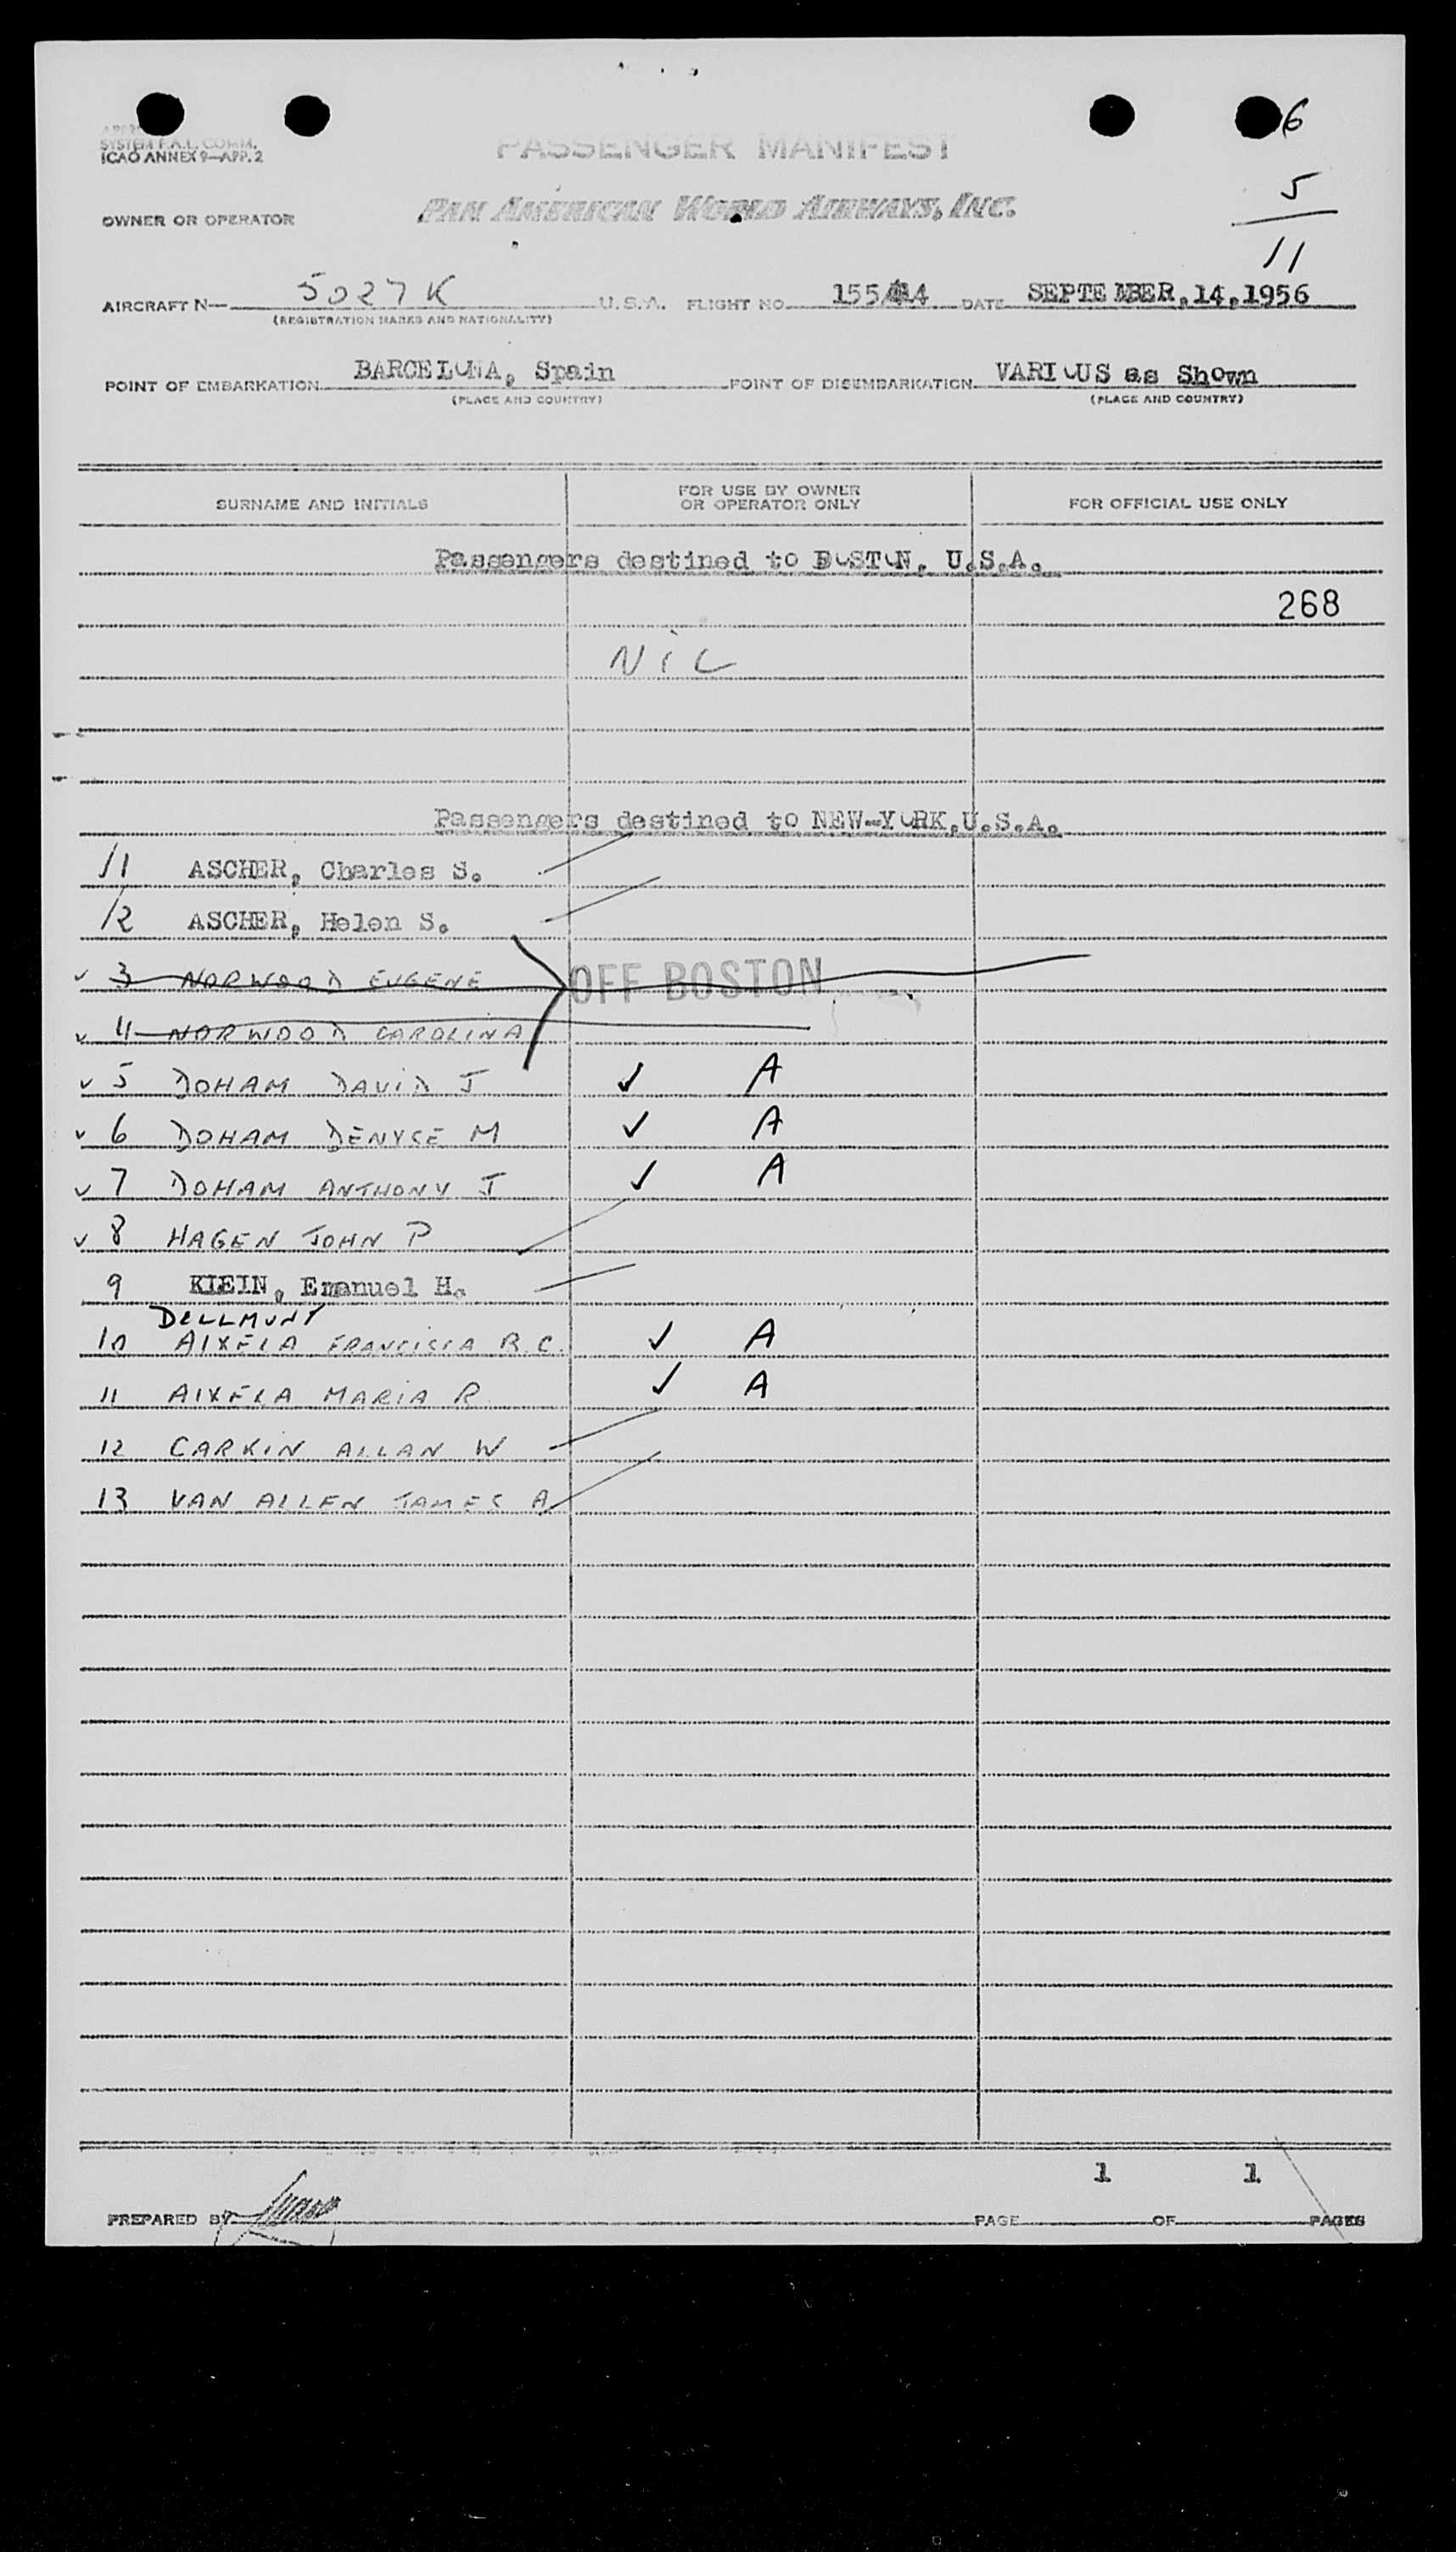 6
SYSTEM F.A.L. COMM.
ICAO ANNEX 9—APP. 2
PASSENGER MANIFEST
5
OWNER OR OPERATOR PAN AMERICAN WORLD AIRWAYS, INC.
11
AIRCRAFT N— 5027K U.S.A. FLIGHT NO. 155/44 DATE SEPTEMBER,14,1956
(REGISTRATION MARKS AND NATIONALITY)
POINT OF EMBARKATION BARCELONA, Spain POINT OF DISEMBARKATION VARIOUS as Shown
(PLACE AND COUNTRY) (PLACE AND COUNTRY)
SURNAME AND INITIALS FOR USE BY OWNER OR OPERATOR ONLY FOR OFFICIAL USE ONLY
Passengers destined to BOSTON, U.S.A.
268
NIL
Passengers destined to NEW-YORK,U.S.A.
/1 ASCHER, Charles S.
/2 ASCHER, Helen S.
✓ 3 NORWOOD EUGENE OFF BOSTON
✓ 4 NORWOOD CAROLINA
✓ 5 DOHAM DAVID J ✓ A
✓ 6 DOHAM DENYSE M ✓ A
✓ 7 DOHAM ANTHONY J ✓ A
✓ 8 HAGEN JOHN P
9 KLEIN, Emanuel H.
DELLMUNT
10 AIXELA FRANCISCA R.C. ✓ A
11 AIXELA MARIA R ✓ A
12 CARKIN ALLAN W
13 VAN ALLEN JAMES A
1 1
PREPARED BY PAGE OF PAGES